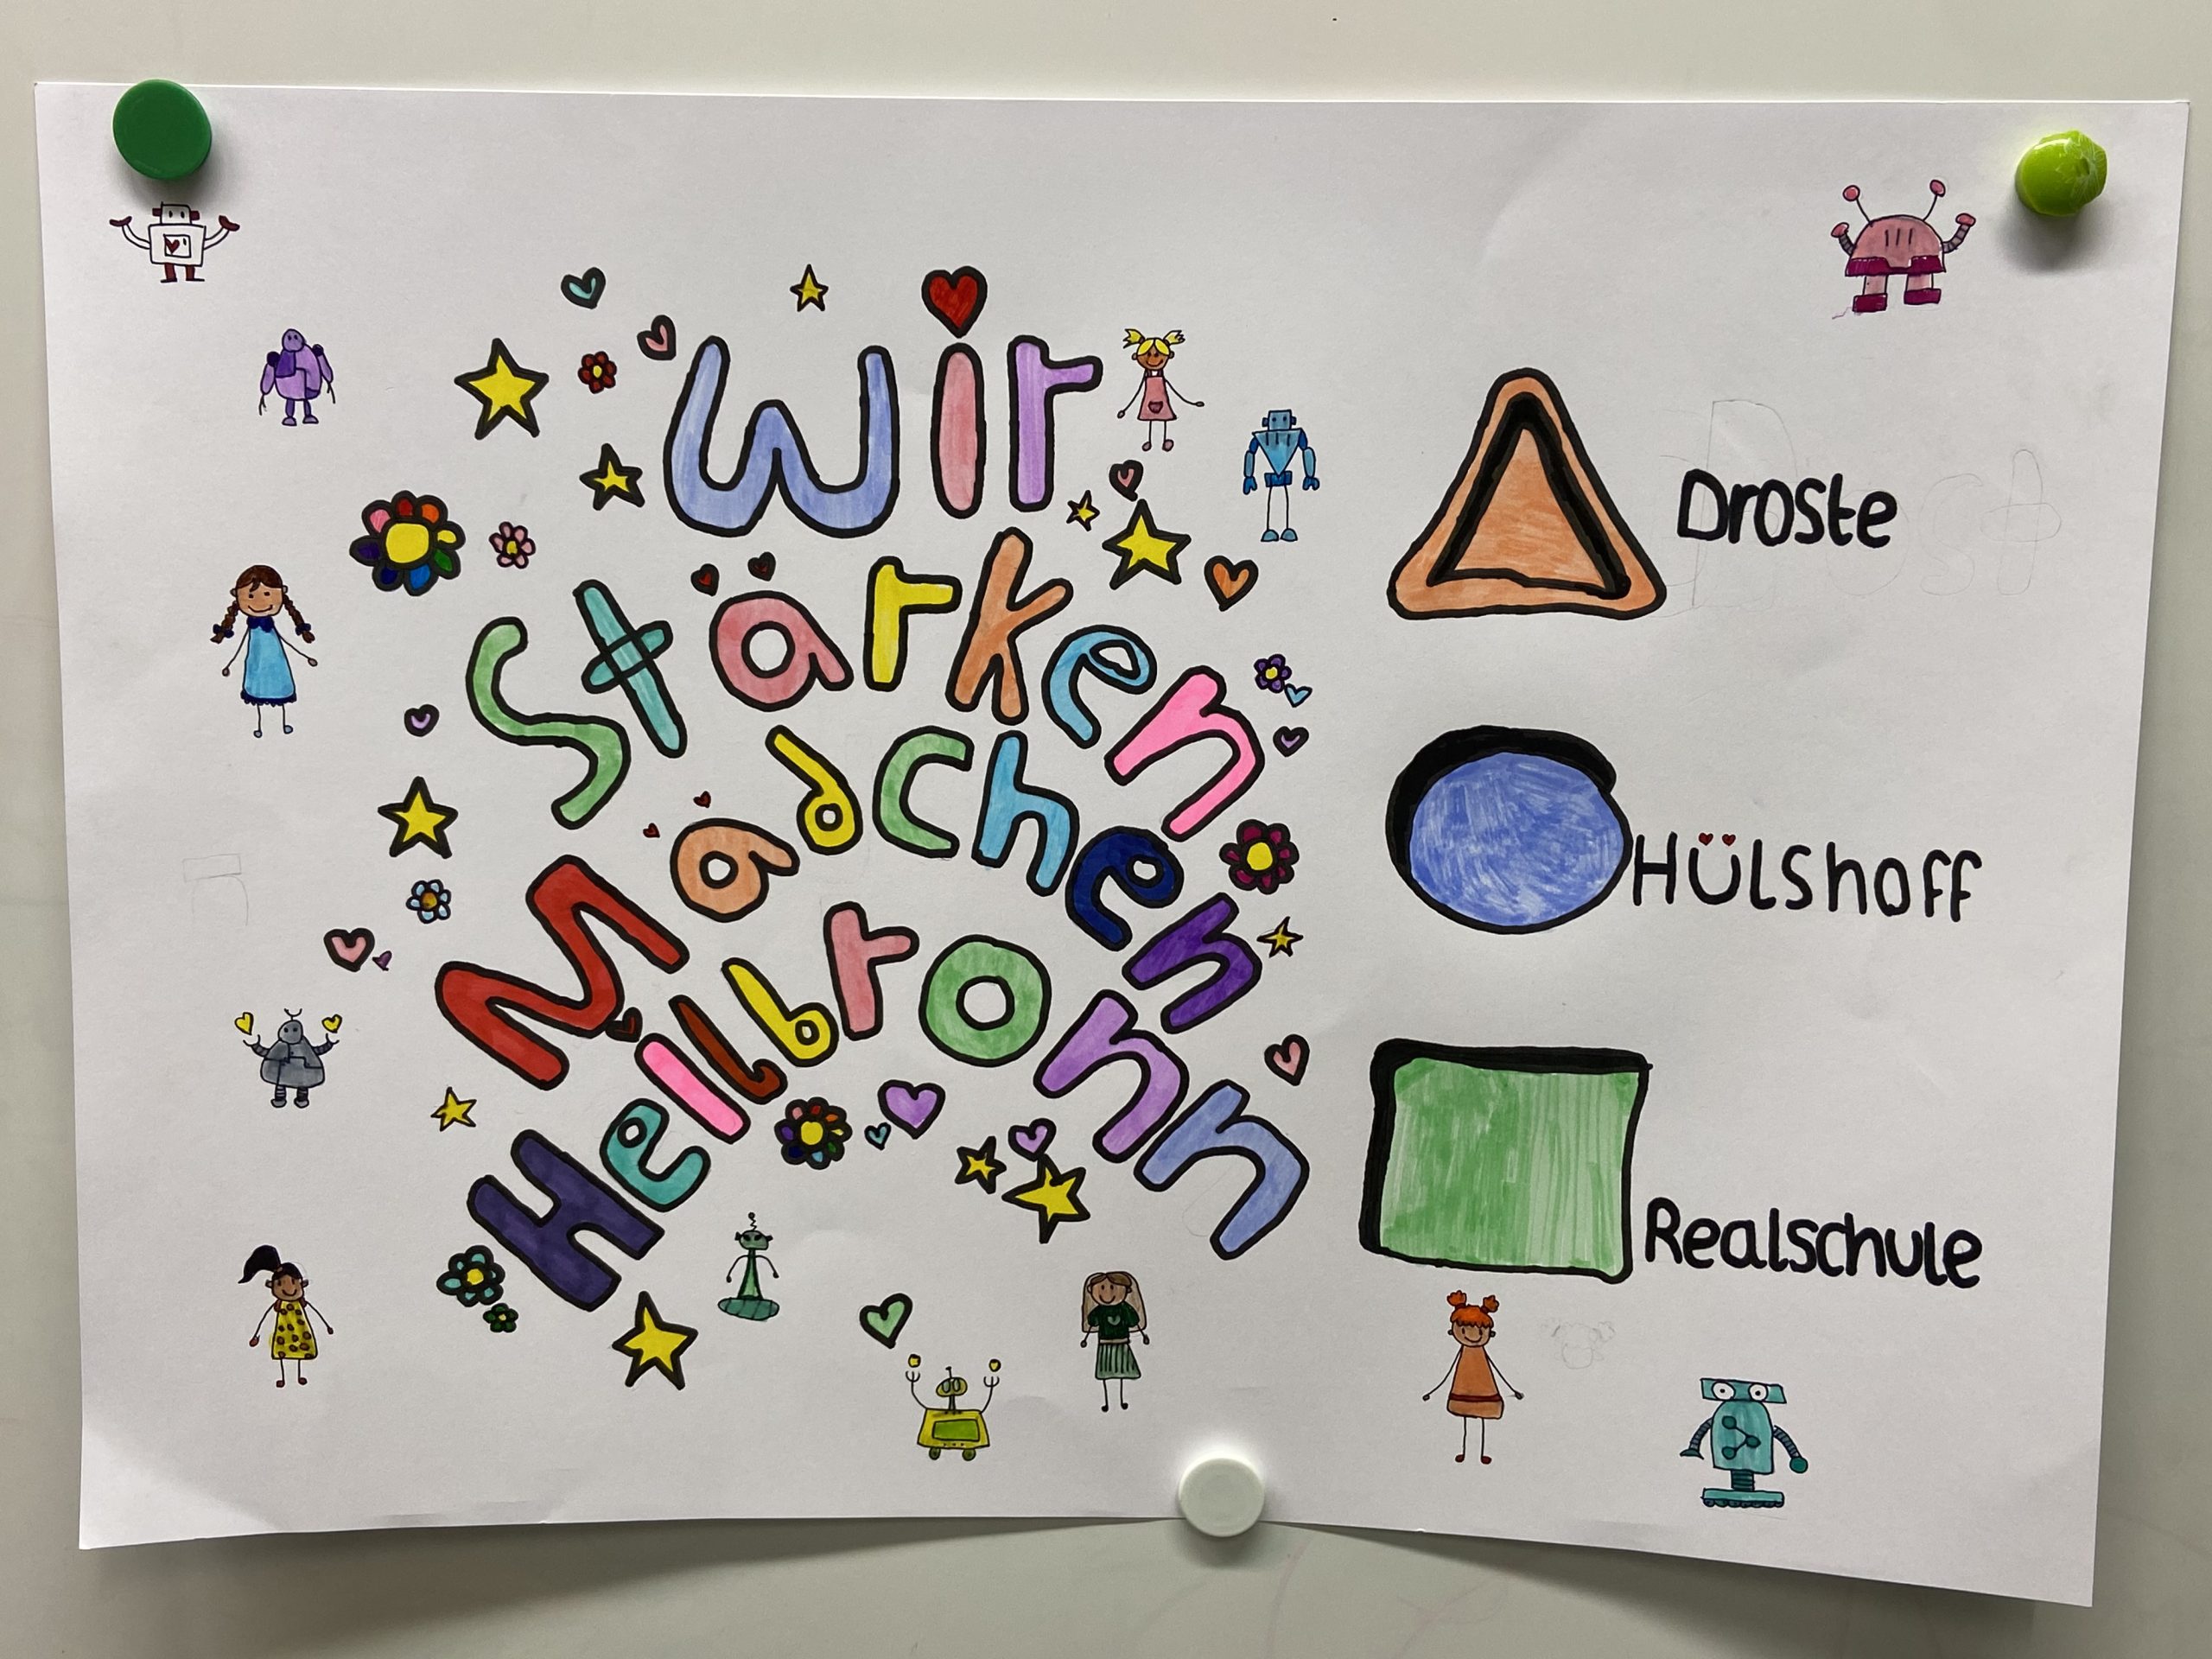 wir
Stärken
Mädchen
Heilbronn
Droste
Hülshoff
Realschule